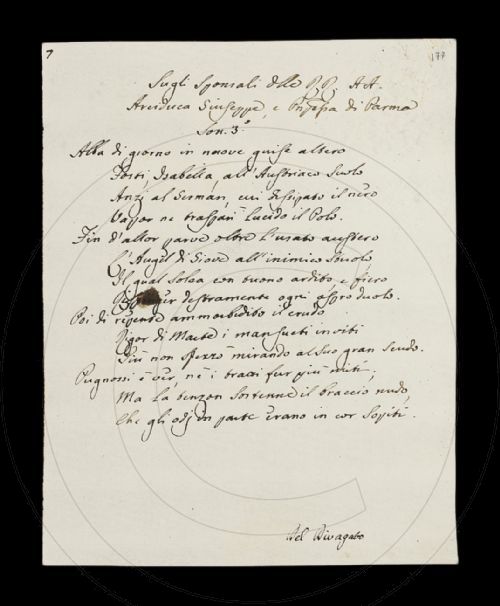 7
177
Sugli Sponsali delle P.P. AA.
Arciduca Giuseppe, e Pnpessa di Parma
Son. 3.º
Alba di giorno in nuove guise altero
Porti, Isabella, all'Austriaco Suolo
Anzi al German, cui dissipato il nero
Vapor ne traspari lucido il Polo.
Fin d'allor parve oltre l'usato austero
L'Augel di Giove all'inimico Stuolo
Il qual solea con buono ardito, e fiero
destramente ogni aspro duolo.
Poi di repente ammorbidito il crudo
Vigor di Marte i mansueti inviti
Più non sprezzò mirando al Suo gran Scudo.
Pugnossi è ver, nè i bracci fur più miti,
Ma la tenzon sostenne il braccio nudo,
Che gli odj in parte erano in cor Sopiti.
Del Divagato